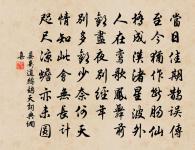 當日佳期鵲誤傳
至今猶作斷腸仙
橋成漢渚星波外
人在鸞歌鳳舞前
歡盡夜別經年
別多歡少奈何天
情知此會無長計
咫尺涼蟾亦未圓
晏幾道鷓鴣天詞典